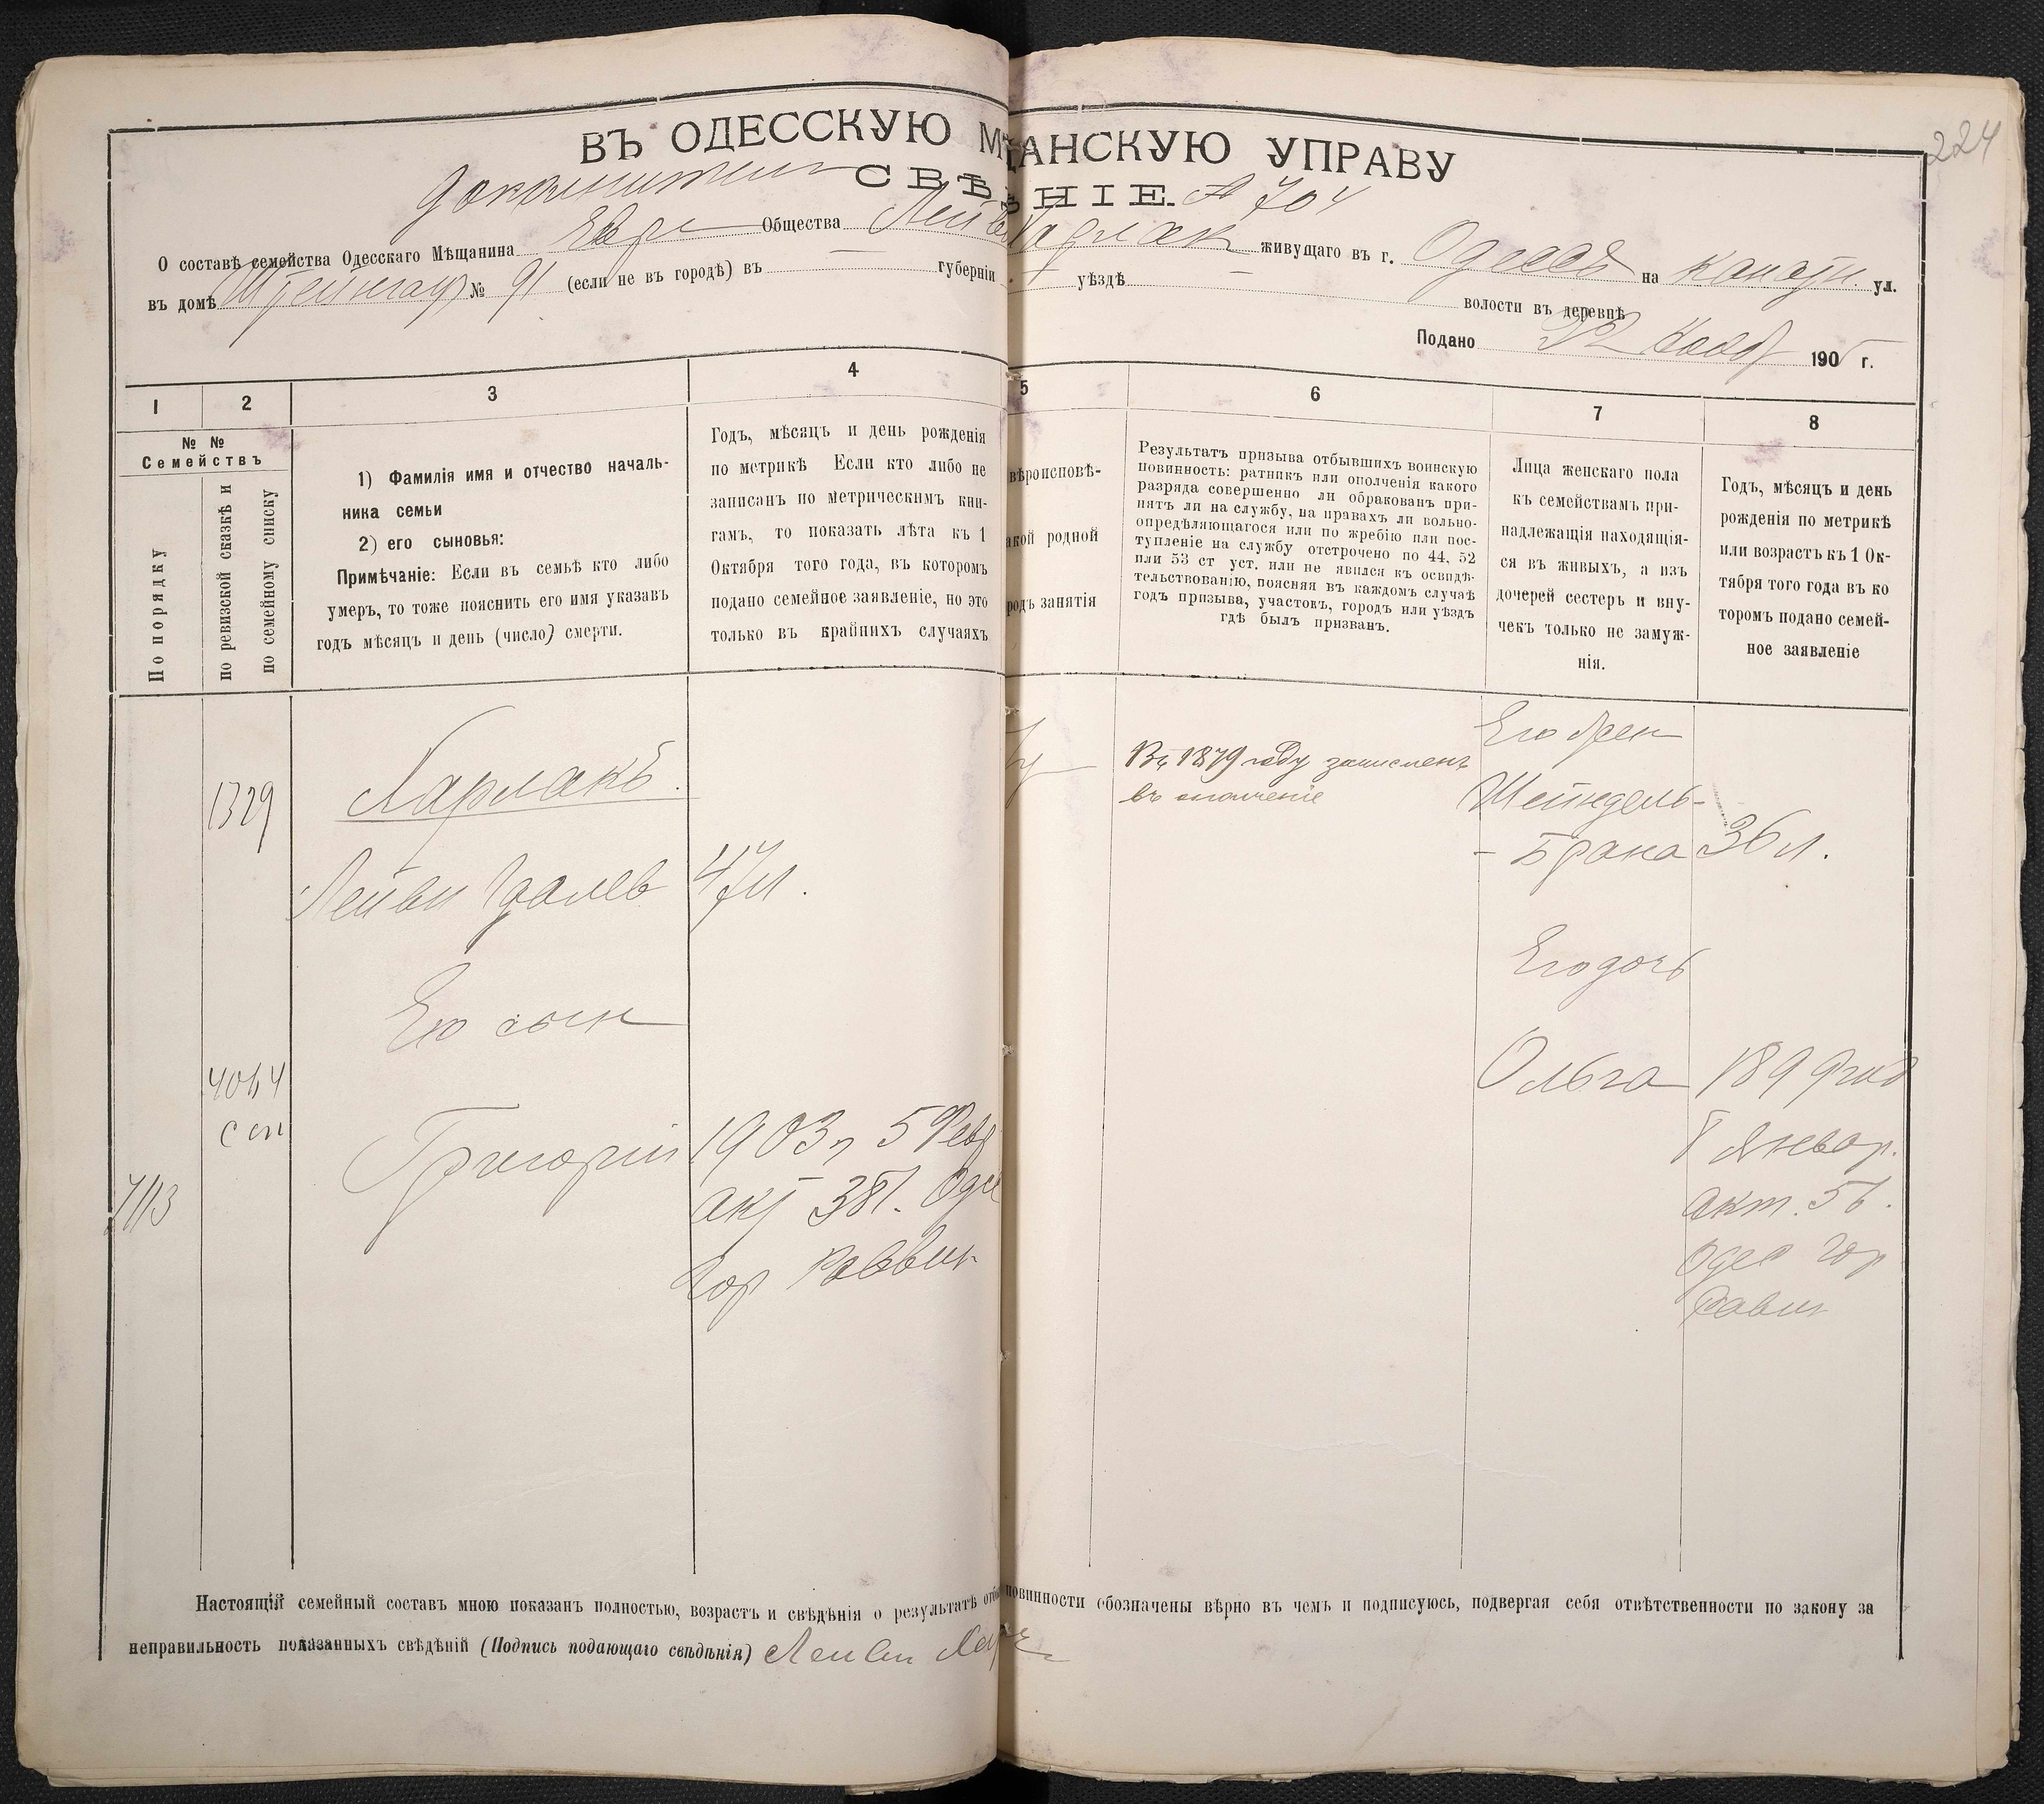 224
ВЪ ОДЕССКУЮ М АНСКУЮ УПРАВУ
СВѢ НІЕ. 704
О составѣ семейства Одесскаго Мѣщанина Евр Общества Лейви Харлак живущаго въ г. Одессѣ на Канатн. ул.
въ домѣ № 91 (если не въ городѣ) въ — губерніи — уѣздѣ — волости въ деревнѣ
Подано 22 Нояб 1905 г.
1 2 3 4 5 6 7 8
№ №
Семействъ
По порядку
по ревизской сказкѣ и
по семейному списку
1) Фамилія имя и отчество началь-
ника семьи
2) его сыновья:
Примѣчаніе: Если въ семьѣ кто либо
умеръ, то тоже пояснить его имя указавъ
годъ мѣсяцъ и день (число) смерти.
Годъ, мѣсяцъ и день рожденія
по метрикѣ Если кто либо не
записанъ по метрическимъ кни-
гамъ, то показать лѣта къ 1
Октября того года, въ которомъ
подано семейное заявленіе, но это
только въ крайнихъ случаяхъ
вѣроисповѣ-
акой родной
родъ занятія
Результатъ призыва отбывшихъ воинскую
повинность: ратникъ или ополченія какого
разряда совершенно ли обракованъ при-
нятъ ли на службу, на правахъ ли вольно-
опредѣляющагося или по жребію или пос-
тупленіе на службу отстрочено по 44, 52
или 53 ст уст. или не явился къ освидѣ-
тельствованію, поясняя въ каждомъ случаѣ
годъ призыва, участокъ, городъ или уѣздъ
гдѣ былъ призванъ.
Лица женскаго пола
къ семействамъ при-
надлежащія находящія-
ся въ живыхъ, а изъ
дочерей сестеръ и вну-
чекъ только не замуж-
нія.
Годъ, мѣсяцъ и день
рожденія по метрикѣ
или возрастъ къ 1 Ок-
тября того года въ ко
торомъ подано семей-
ное заявленіе
1329
Харлакъ.
Лейви Гдалев 47 л.
Его сын
4064
сем
7113
Григорій
1903 г 5 Февр
акт 381. Одес
Гор Раввин
Въ 1879 году зачисленъ
въ ополченіе
Его жен
Шейндель-
- Брана 36 л.
Его дочь
Ольга
1899 год
Январ.
акт. 56.
Одес гор
Равин
Настоящій семейный составъ мною показанъ полностью, возрастъ и свѣдѣнія о результатѣ отбы повинности обозначены вѣрно въ чемъ и подписуюсь, подвергая себя отвѣтственности по закону за
неправильность показанныхъ свѣдѣній (Подпись подающаго свѣдѣнія) Лейви